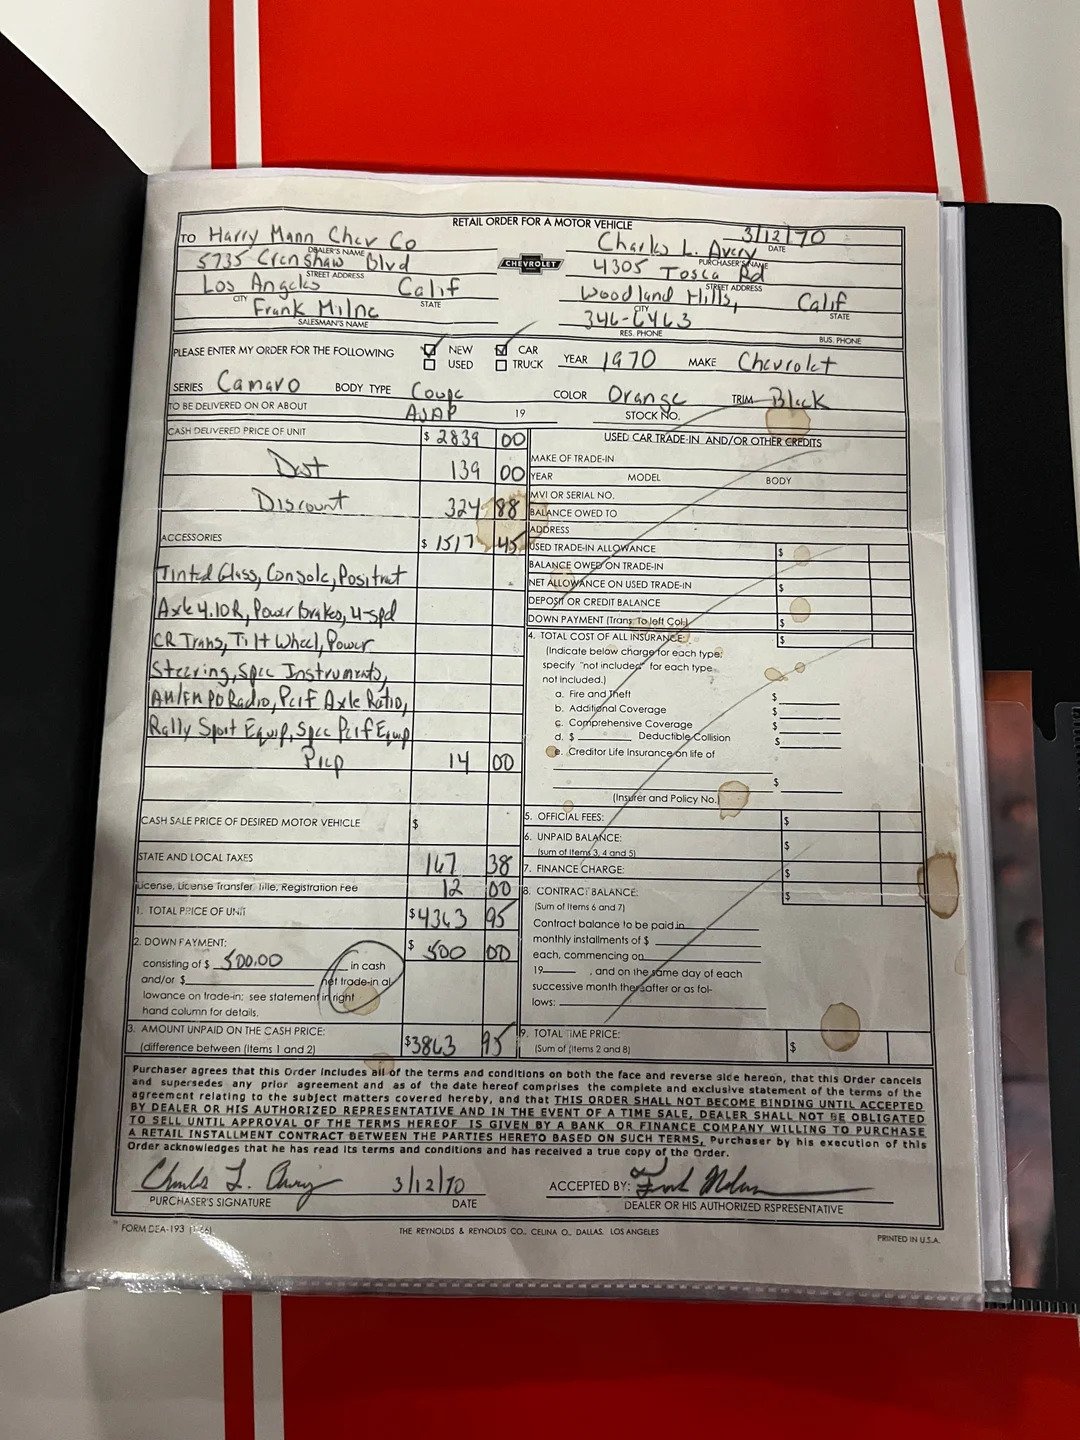 RETAIL ORDER FOR A MOTOR VEHICLE
3/12/70
DATE
TO Harry Mann Chev Co
DEALER'S NAME
5735 Crenshaw Blvd
STREET ADDRESS
Los Angeles Calif
CITY STATE
Frank Milne
SALESMAN'S NAME
CHEVROLET
Charles L. Avery
PURCHASER'S NAME
4305 Tosca Rd
STREET ADDRESS
Woodland Hills, Calif
CITY STATE
346-6463
RES. PHONE BUS. PHONE
PLEASE ENTER MY ORDER FOR THE FOLLOWING NEW CAR YEAR 1970 MAKE Chevrolet
USED TRUCK
SERIES Camaro BODY TYPE Coupe COLOR Orange TRIM Black
TO BE DELIVERED ON OR ABOUT ASAP 19 STOCK NO.
CASH DELIVERED PRICE OF UNIT $ 2839 00
Dest 139 00
Discount 324 88
ACCESSORIES $ 1517 45
Tinted Glass, Console, Positract
Axle 4.10R, Power Brakes, 4-spd
CR Trans, Tilt Wheel, Power
Steering, Spec Instruments,
AM/FM PO Radio, Perf Axle Ratio,
Rally Sport Equip, Spec Perf Equip
Prep 14 00
CASH SALE PRICE OF DESIRED MOTOR VEHICLE $
STATE AND LOCAL TAXES 167 38
License, License Transfer, Title, Registration Fee 12 00
1. TOTAL PRICE OF UNIT $4363 95
2. DOWN PAYMENT: $ 500 00
consisting of $ 500.00 in cash
and/or $ net trade-in al
lowance on trade-in; see statement in right
hand column for details.
3. AMOUNT UNPAID ON THE CASH PRICE: $3863 95
(difference between (Items 1 and 2)
USED CAR TRADE-IN AND/OR OTHER CREDITS
MAKE OF TRADE-IN
YEAR MODEL BODY
MVI OR SERIAL NO.
BALANCE OWED TO
ADDRESS
USED TRADE-IN ALLOWANCE $
BALANCE OWED ON TRADE-IN
NET ALLOWANCE ON USED TRADE-IN $
DEPOSIT OR CREDIT BALANCE
DOWN PAYMENT (Trans. To left Col.) $
4. TOTAL COST OF ALL INSURANCE: $
(Indicate below charge for each type;
specify "not included" for each type
not included.)
a. Fire and Theft $
b. Additional Coverage $
c. Comprehensive Coverage $
d. $ Deductible Collision $
e. Creditor Life Insurance on life of
$
(Insurer and Policy No.)
5. OFFICIAL FEES: $
6. UNPAID BALANCE: $
(sum of Items 3, 4 and 5)
7. FINANCE CHARGE: $
8. CONTRACT BALANCE: $
(Sum of Items 6 and 7)
Contract balance to be paid in
monthly installments of $
each, commencing on
19 , and on the same day of each
successive month thereafter or as fol-
lows:
9. TOTAL TIME PRICE: $
(Sum of (Items 2 and 8)
Purchaser agrees that this Order includes all of the terms and conditions on both the face and reverse side hereon, that this Order cancels
and supersedes any prior agreement and as of the date hereof comprises the complete and exclusive statement of the terms of the
agreement relating to the subject matters covered hereby, and that THIS ORDER SHALL NOT BECOME BINDING UNTIL ACCEPTED
BY DEALER OR HIS AUTHORIZED REPRESENTATIVE AND IN THE EVENT OF A TIME SALE, DEALER SHALL NOT BE OBLIGATED
TO SELL UNTIL APPROVAL OF THE TERMS HEREOF IS GIVEN BY A BANK OR FINANCE COMPANY WILLING TO PURCHASE
A RETAIL INSTALLMENT CONTRACT BETWEEN THE PARTIES HERETO BASED ON SUCH TERMS, Purchaser by his execution of this
Order acknowledges that he has read its terms and conditions and has received a true copy of the Order.
Charles L. Avery 3/12/70 ACCEPTED BY: Frank Milne
PURCHASER'S SIGNATURE DATE DEALER OR HIS AUTHORIZED RSPRESENTATIVE
FORM DEA-193 THE REYNOLDS & REYNOLDS CO., CELINA O., DALLAS, LOS ANGELES PRINTED IN U.S.A.